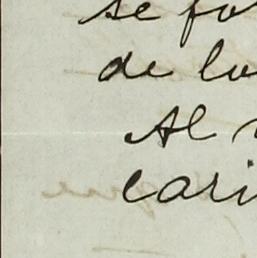 se fo
de lo
Al
cari